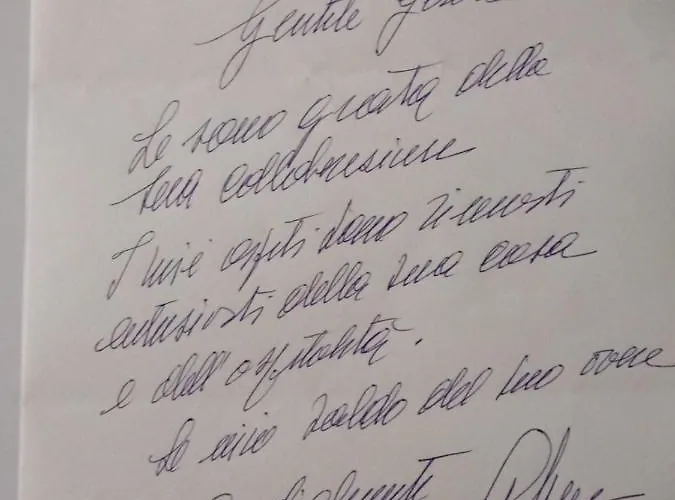 Gentile
Le sono grata della
sua collaborazione
I miei ospiti sono rimasti
entusiasti della sua casa
e dell'ospitalità.
Le invio saldo del suo